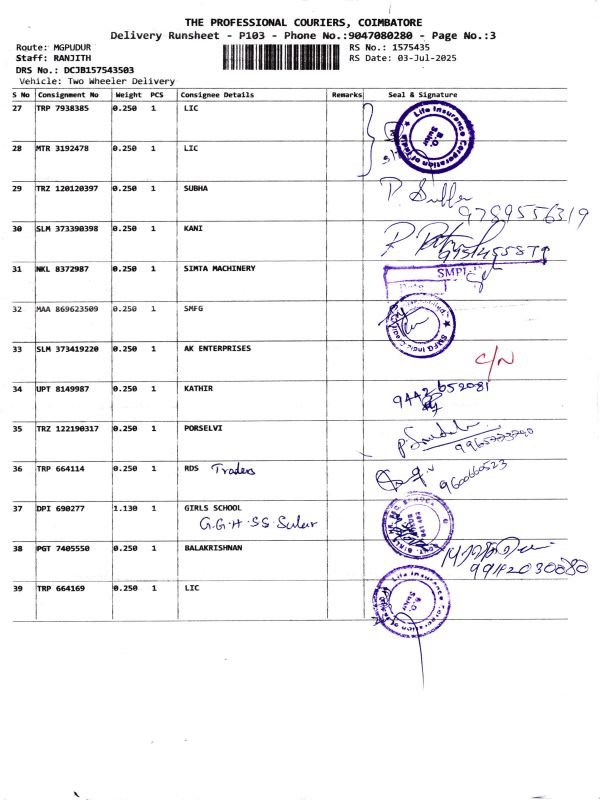 THE PROFESSIONAL COURIERS, COIMBATORE
Delivery Runsheet - P103 - Phone No.:9047080280 - Page No.:3
Route: MGPUDUR
RS No.: 1575435
Staff: RANJITH
RS Date: 03-Jul-2025
DRS No.: DCJB157543503
Vehicle: Two Wheeler Delivery
S No Consignment No Weight PCS Consignee Details Remarks Seal & Signature
27 TRP 7938385 0.250 1 LIC
Life Insurance Corporation of India
B.O.
Sulur
28 MTR 3192478 0.250 1 LIC
29 TRZ 120120397 0.250 1 SUBHA
9789556319
30 SLM 373390398 0.250 1 KANI
31 NKL 8372987 0.250 1 SIMTA MACHINERY
Date
32 MAA 869623509 0.250 1 SMFG
SMFG India Credit
33 SLM 373419220 0.250 1 AK ENTERPRISES
C/N
34 UPT 8149987 0.250 1 KATHIR
9442652081
35 TRZ 122190317 0.250 1 PORSELVI
36 TRP 664114 0.250 1 RDS Traders
9600660523
37 DPI 690277 1.130 1 GIRLS SCHOOL
G.G.H.SS. Sulur
38 PGT 7405550 0.250 1 BALAKRISHNAN
39 TRP 664169 0.250 1 LIC
Life Insurance Corporation of India
B.O.
Sulur